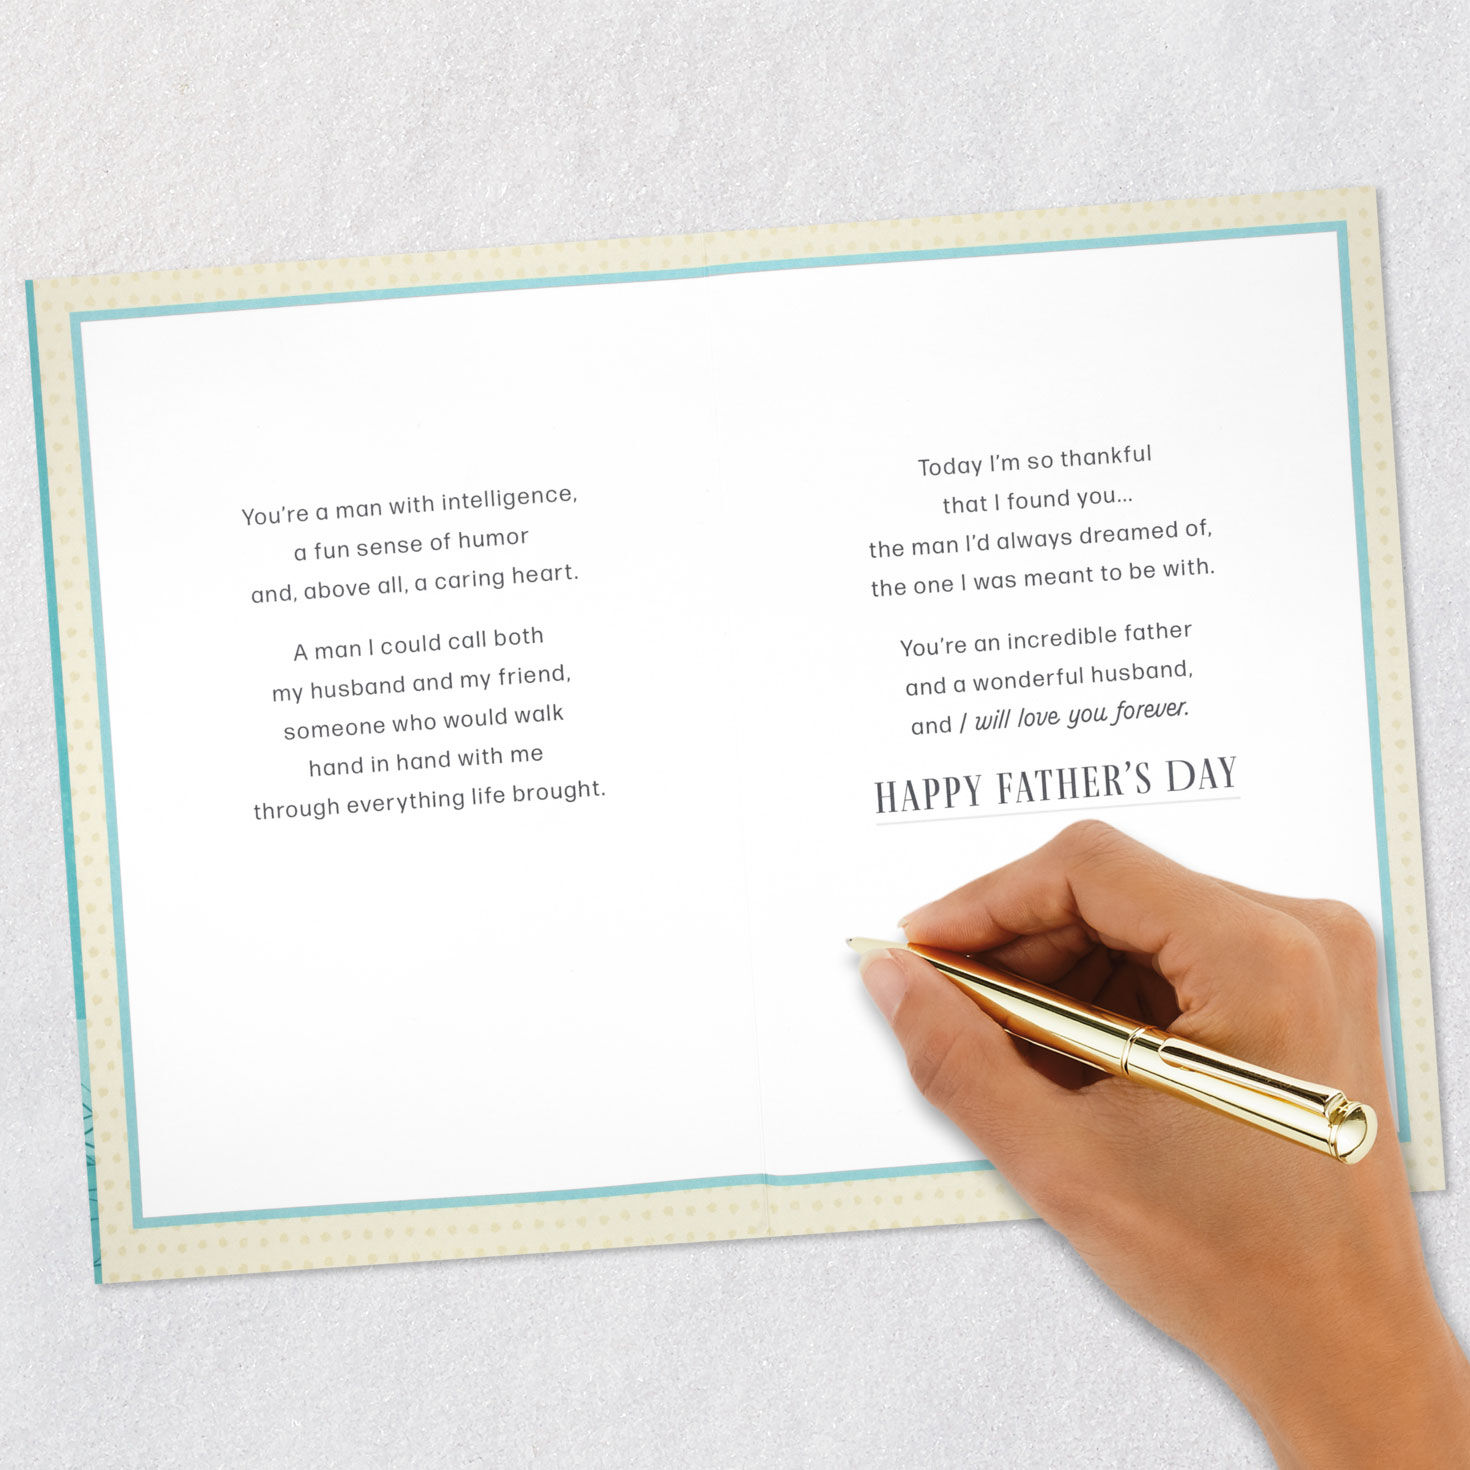 You're a man with intelligence,
a fun sense of humor
and, above all, a caring heart.
A man I could call both
my husband and my friend,
someone who would walk
hand in hand with me
through everything life brought.
Today I'm so thankful
that I found you...
the man I'd always dreamed of,
the one I was meant to be with.
You're an incredible father
and a wonderful husband,
and I will love you forever.
HAPPY FATHER'S DAY